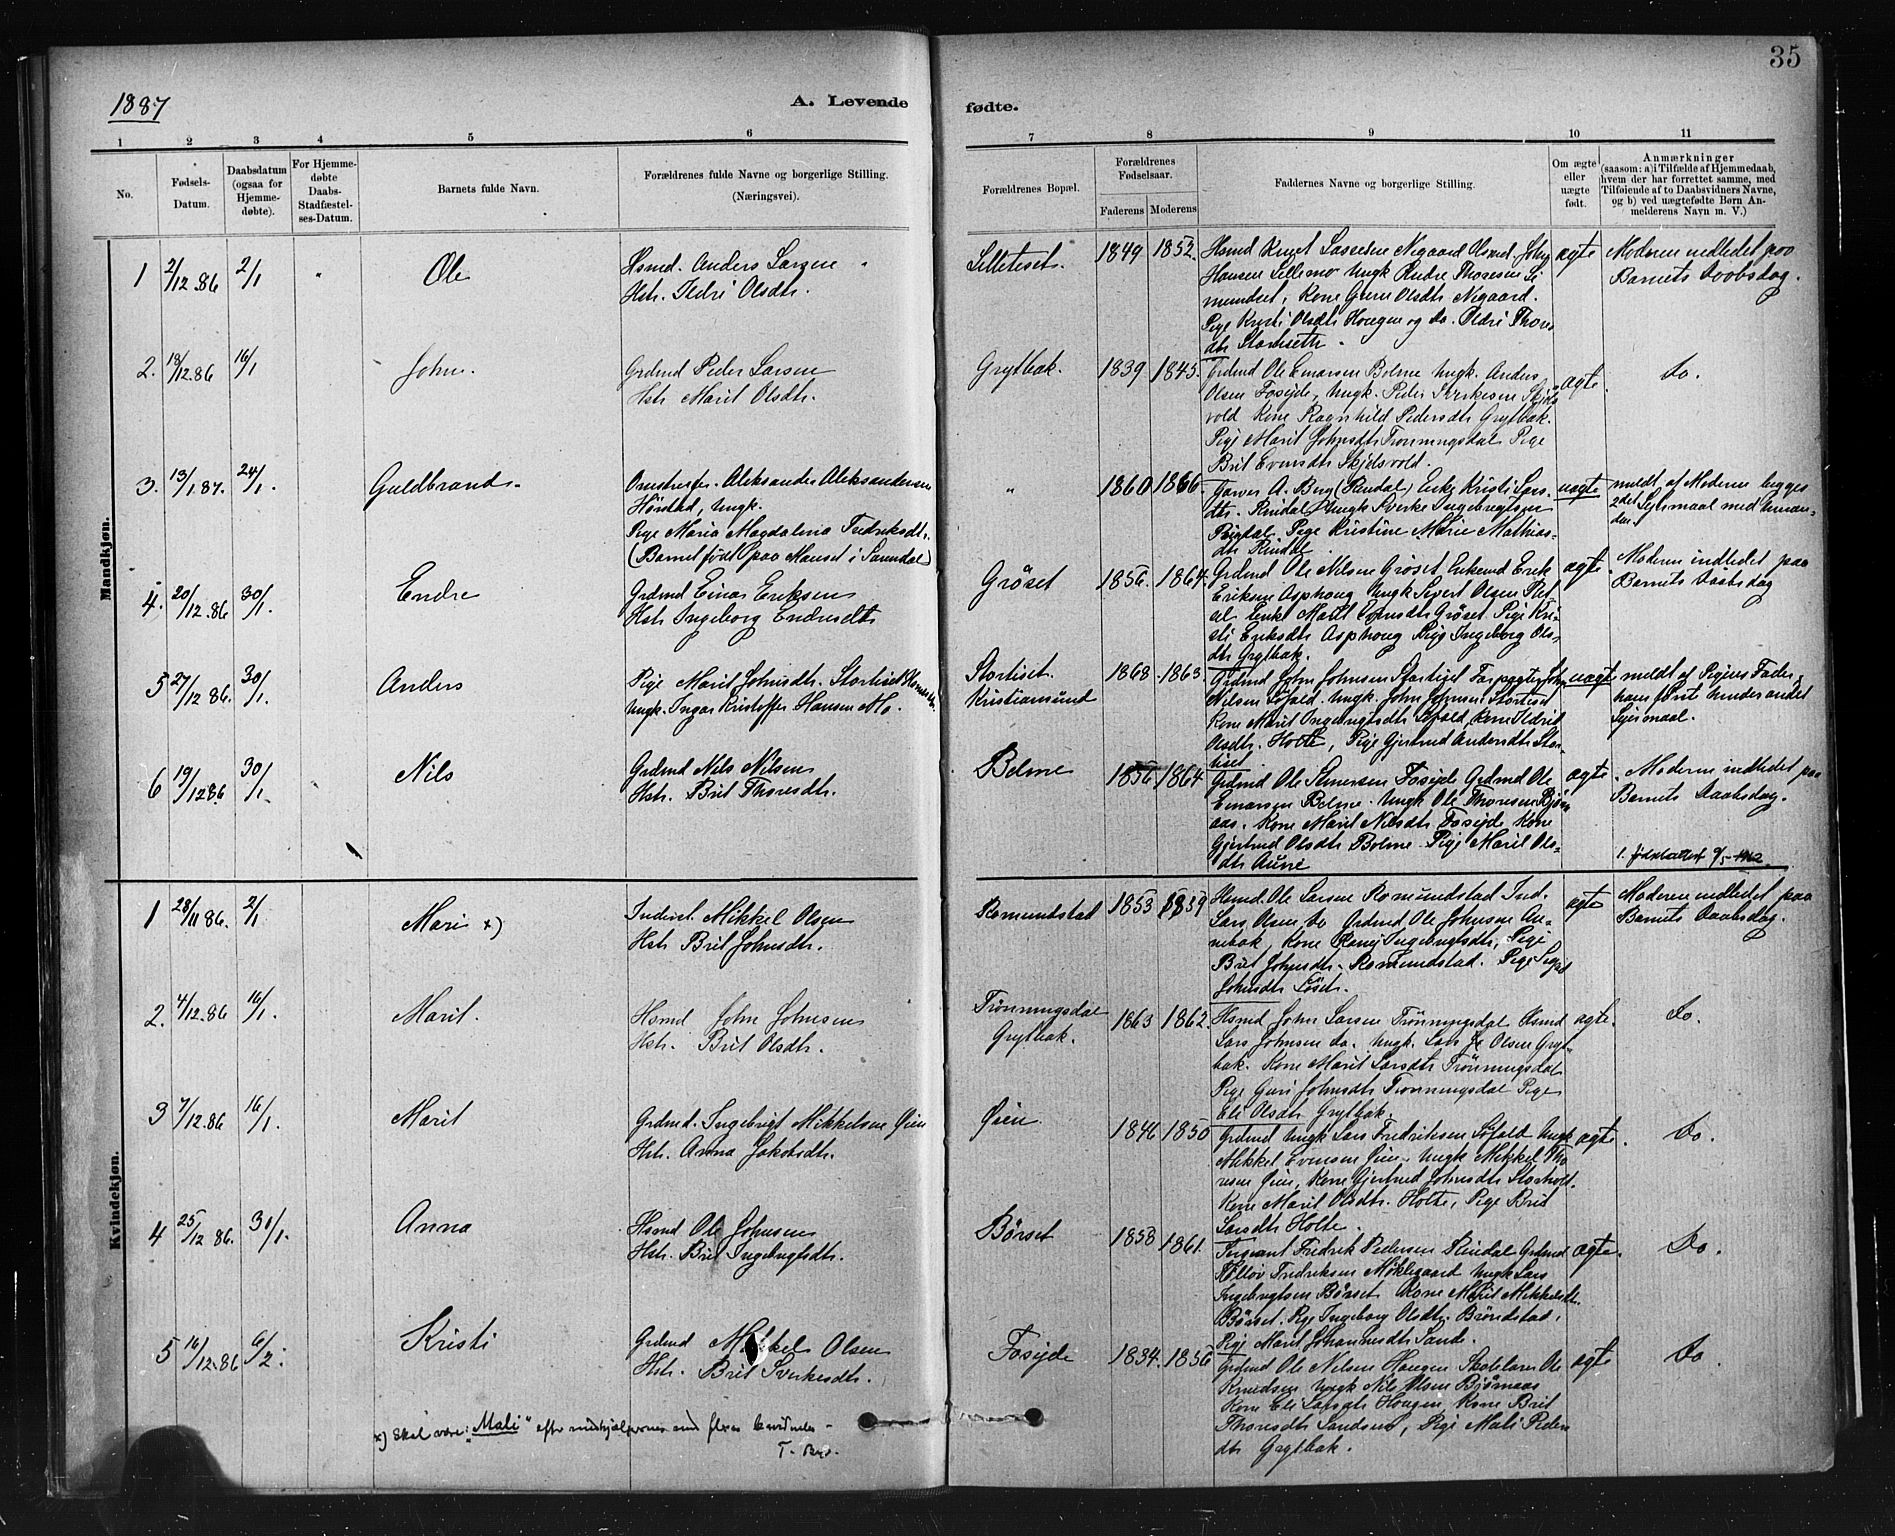 35
1887
A. Levende fødte.
1 2 3 4 5 6 7 8 9 10 11
No.
Fødsels-Datum.
Daabsdatum (ogsaa for Hjemme-døbte).
For Hjemme-døbte Daabs-Stadfæstel-ses-Datum.
Barnets fulde Navn.
Forældrenes fulde Navne og borgerlige Stilling. (Næringsvei).
Forældrenes Bopæl.
Forældrenes Fødselsaar.
Faderens Moderens
Faddernes Navne og borgerlige Stilling.
Om ægte eller uægte født.
Anmærkninger
(saasom: a) i Tilfælde af Hjemmedaab, hvem der har forrettet samme, med Tilføiende af to Daabsvidners Navne, og b) ved uægtefødte Børn An-melderens Navn m. V.)
Mandkjøn.
1 2/12 86 2/1 " Ole
Hsmd. Anders Larsen
Hst. Ildri Olsdtr.
Lilletiset. 1849 1852.
Hsmd Knut Lassesen Negaard Hsmd John
Hansen Lillemo Ungk Endre Thoresen
Kone Guru Olsdtr Negaard.
Pige Kristi Olsdtr Hougen og do. Ildri Thors
dtr Stortiseth.
ægte Moderen indledet paa
Barnets Daabsdag.
2. 18/12.86 16/1 John.
Grdmd Peder Larsen
Hstr Marit Olsdtr.
Grytbak. 1839 1845.
Grdmd Ole Einarsen Bolme Ungk. Anders
Olsen Fosejde, Ungk. Peder Sverkesen Skjds
vold Kone Ragnhild Pedersdtr Grytbak.
Pige Marit Johnsdtr Trønningsdal Pige
Brit Evensdtr Skjdsvold.
ægte. Do.
3. 13/1.87. 24/1. Guldbrand.
Aleksander Aleksandersen
Ungk.
Pige Maria Magdalena Fredriksdtr.
(Barnet født paa i Sunndal)
" 1860 1866
Garver A. Berg (Rindal) Enke Kristi Lars-
dtr. Rindal Ungk Sverke Ingebrigtsen
Rindal. Pige Kristine Marie Mathias-
dtr Rindal
uægte meldt af Moderen begges
2det Leiermaal med hinan-
den.
4. 20/12.86 30/1. Endre
Grdmd Einar Eriksen
Hstr Ingeborg Endresdtr
Grøset 1856. 1864.
Grdmd Ole Nilsen Grøset Enkemd Erik
Eriksen Asphoug Ungk Sivert Olsen
Enke Marit Grøset Pige Kri-
sti Eriksdtr Asphoug Pige Ingeborg Ols-
dtr Grytbak.
ægte Moderen indledet paa
Barnets Daabsdag
5 27/12 86. 30/1. Anders
Pige Marit Johnsdtr. Stortiset
Ungk. Ingar Kristoffer Hansen Mo.
Stortiset.
Kristiansund 1868. 1863.
Grdmd John Johnsen Stortiset John
Nilsen Løfald. Ungk. John Johnsen Stortiset
Kone Marit Ingebrigtsdtr Løfald Kone Ildrid
Olsdtr. Holte, Pige Gjertrud Andersdtr Stor-
tiset
uægte meldt af Pigens Fader,
hans første hendes andet
Leiermaal.
6 19/1286 30/1 Nils
Grdmd Nils Nilsen
Hstr. Brit Thoresdtr.
Bolme 1856 1864
Grdmd Ole Fosejde Grdmd Ole
Einarsen Bolme. Ungk Ole Thoresen Bjørn
aas. Kone Marit Nilsdtr Fosejde Kone
Gjertrud Olsdtr Bolme Pige Marit Ols-
dtr Aune
ægte Moderen indledet paa
Barnets Daabsdag.
1. fødselsattest
Kvindekjøn.
1 28/11 86. 2/1 Mari x)
Inderst. Mikkel Olsen
Hstr Brit Johnsdtr.
Romundstad 1853 1859
Hsmd. Ole Larsen Romundstad Ind.
Lars Olsen do Grdmd Ole Johnsen
Kone Ranei Ingebrigtsdtr, Pige
Brit Johnsdtr. Romundstad. Pige Sigrid
Johnsdtr Løset.
ægte Moderen indledet paa
Barnets Daabsdag.
2. 4/12.86 16/1. Marit.
Hsmd John Johnsen
Hstr. Brit Olsdtr.
Trønningsdal
Grytbak. 1863 1862.
Hsmd John Larsen Trønningsdal Hsmd
Lars Johnsen do. Ungk. Lars Olsen Gryt-
bak. Kone Marit Larsdtr Trønningsdal
Pige Guri Johnsdtr Trønningsdal Pige
Eli Olsdtr Grytbak.
ægte. Do.
3 7/12.86 16/1. Marit
Grdmd. Ingebrigt Mikkelsen Øien
Hstr. Anna Jakobsdtr.
Øien. 1846 1850
Grdmd Ungk Lars Fredriksen Løfald Ungk
Mikkel Evensen Øien. Ungk Mikkel Tho
resen Øien, Kone Gjertrud Johnsdtr Storholt.
Kone Marit Olsdtr. Holte, Pige Brit
Larsdtr Holte.
ægte. Do.
4 25/12 86. 31/1. Anna
Hsmd Ole Johnsen
Hstr. Brit Ingebrigtsdtr.
Børset 1858 1861.
Sergeant Fredrik Pedersen Rindal Grdmd
Fredriksen Møklegaard Ungk Lars
Ingebrigtsen Børset. Kone Marit Mikkelsdtr.
Børset. Pige Ingeborg Olsdtr. Brøndstad,
Pige Marit Johannesdtr Sande.
ægte. Do.
5 16/12.86 6/2. Kristi
Grdmd Mikkel Olsen
Hstr. Brit Sverkesdtr.
Fosejde 1834. 1856
Grdmd Ole Nilsen Hougen Skolelærer Ole
Knudsen Ungk Nils Olsen Bjørnaas
Kone Eli Larsdtr Hougen Kone Brit
Thoresdtr Sandsmo, Pige Mali Peders
dtr Grytbak.
ægte Do.
x) Skal være: "Mali" efter